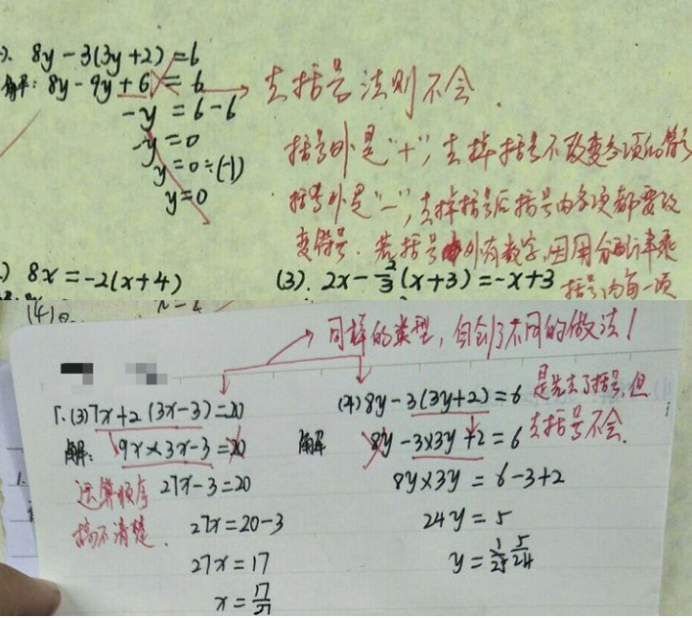 8y-3(3y+2)=6
解：8y-9y+6=6
-y=6-6
-y=0
y=0÷(-1)
y=0
去括号法则不会.
括号外是"+"，去掉括号不改变各项的符号
括号外是"-"，去掉括号后括号内各项都要改
变符号.若括号外有数字，用分配律乘
括号内每一项
8x=-2(x+4)
(3).2x-\frac{2}{3}(x+3)=-x+3
同样的类型，匀到了不同的做法!
1.(3)7x+2(3x-3)=20
解：9x×3x-3=20
27x-3=20
27x=20-3
27x=17
x=\frac{17}{27}
运算顺序
搞不清楚.
(4)8y-3(3y+2)=6
解 8y-3×3y+2=6
8y×3y=6-3+2
24y=5
y=\frac{5}{24}
是先去了括号，但
去括号不会.